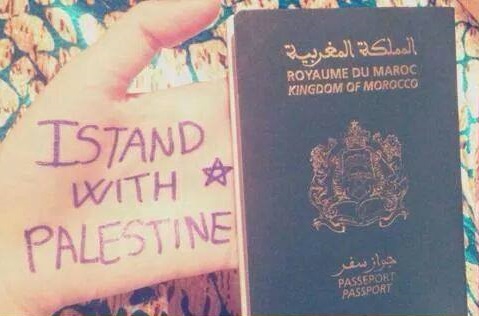 I STAND
WITH
PALESTINE
المملكة المغربية
ROYAUME DU MAROC
KINGDOM OF MOROCCO
جواز سفر
PASSEPORT
PASSPORT